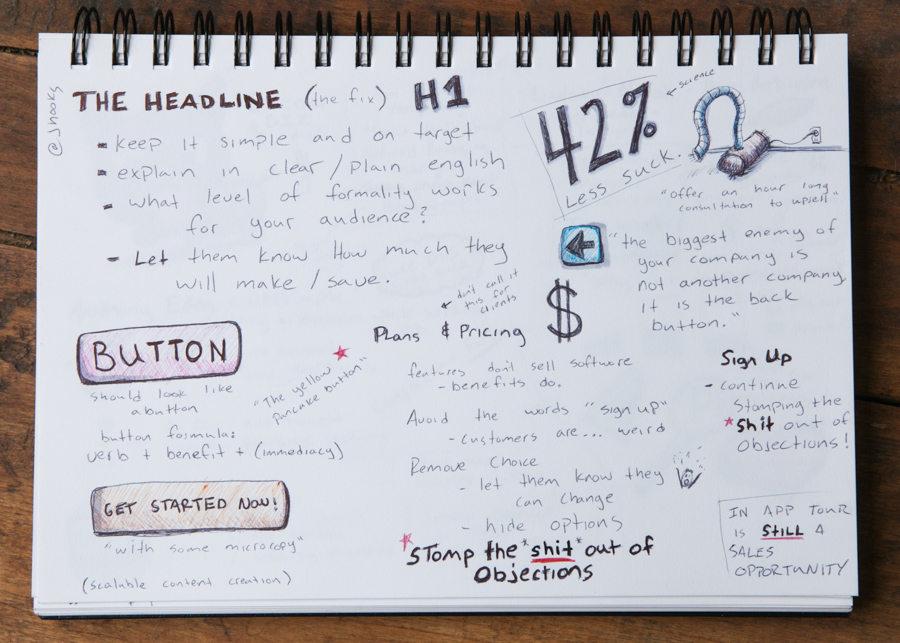 @jhooks
THE HEADLINE (the fix) H1
- keep it simple and on target
- explain in clear/plain english
- what level of formality works
for your audience?
- Let them know How much they
will make/save.
42%
Less suck.
← SCIENCE
"offer an hour long
consultation to upsell"
"the biggest enemy of
your company is
not another company,
it is the back
button."
BUTTON
should look like
a button
button formula:
verb + benefit + (immediacy)
"The yellow
pancake button."
GET STARTED NOW!
"with some microcopy"
(scalable content creation)
don't call it
this for
clients
Plans & Pricing $
features don't sell software
- benefits do.
Avoid the words "sign up"
- customers are... weird
Remove Choice
- let them know they
can change
- hide options
*STOMP the *shit* out of
Objections
Sign Up
- continue
Stomping the
*shit out of
Objections!
IN APP TOUR
IS STILL A
SALES
OPPORTUNITY